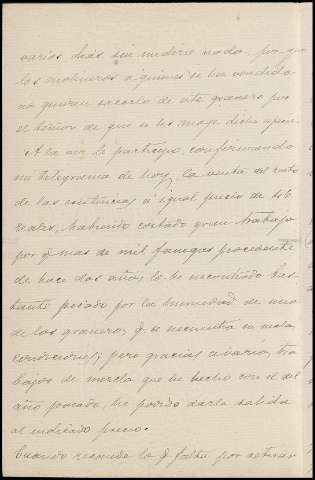 varios dias sin medirse nada, por que
los molineros a quienes se ha vendido
no quieren sacarlo de este granero por
el temor de que se les moje dicho
A la vez le participo, confirmando
mi telegrama de hoy, la venta del resto
de las existencias á igual precio de
reales, habiendo costado gran trabajo
por q. mas de mil fanegas procedente
de hace dos años, lo he encontrado bas-
tante picado por la humedad de uno
de los graneros, q. se encuentra en malas
condiciones; pero gracias á varios tra
bajos de mezcla que he hecho con el del
año pasado, he podido darle salida
al indicado precio.
Cuando recuende lo q. falta por retirar